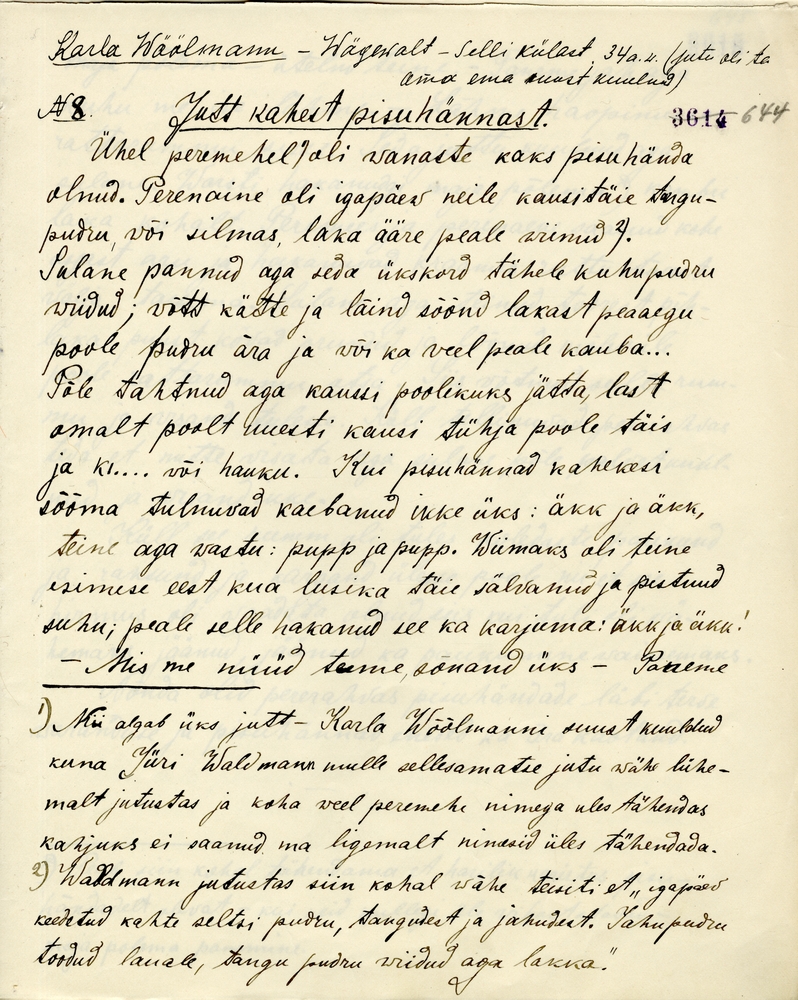 Karla Wöölmann – Wägewalt – Selli külast, 34 a. v. (jutu oli ta
oma ema suust kuulnud)
№ 8. Jutt kahest pisuhännast. 3614 644
Ühel peremehel¹) oli wanaste kaks pisuhända
olnud. Perenaine oli igapäew neile kausitäie tangu-
pudru, wõi silmas, laka ääre peale wiinud²).
Sulane pannud aga seda ükskord tähele kuhu pudru
wiidud; võtt kätte ja läind söönd lakast peaaegu
poole pudru ära ja või ka veel peale kauba...
Põle tahtnud aga kaussi poolikuks jätta, last
omalt poolt uuesti kausi tühja poole täis
ja ki.... või hauku. Kui pisuhännad kahekesi
sööma tulnuvad kaebanud ikke üks: äkk ja äkk,
teine aga wastu: pupp ja pupp. Wiimaks oli teine
esimese eest kua lusika täie sälvanud ja pistnud
suhu; peale selle hakanud see ka karjuma: äkk ja äkk!
– Mis me nüüd teeme, sõnand üks – Paneme
¹) Nii algab üks jutt – Karla Wöölmanni suust kuuldud
kuna Jüri Waldmann mulle sellesamatse jutu wähe lühe-
malt jutustas ja koha veel peremehe nimega üles tähendas
kahjuks ei saanud ma ligemalt nimesid üles tähendada.
²) Waldmann jutustas siin kohal wähe teisiti et „igapäev
keedetud kahte seltsi pudru, tangudest ja jahudest. Jahupudru
toodud lauale, tangu pudru wiidud aga lakka."